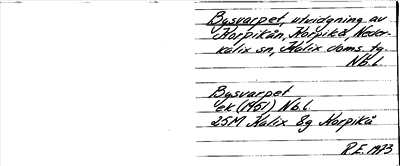 Bysvarpet, utvidgning av
Korpikån, Korpikå, Neder-
kalix sn, Kalix doms. tg.
Nb.l.
Bysvarpet
ek (1951) Nb.l.
25M Kalix 8g Korpikå
R.E. 1983